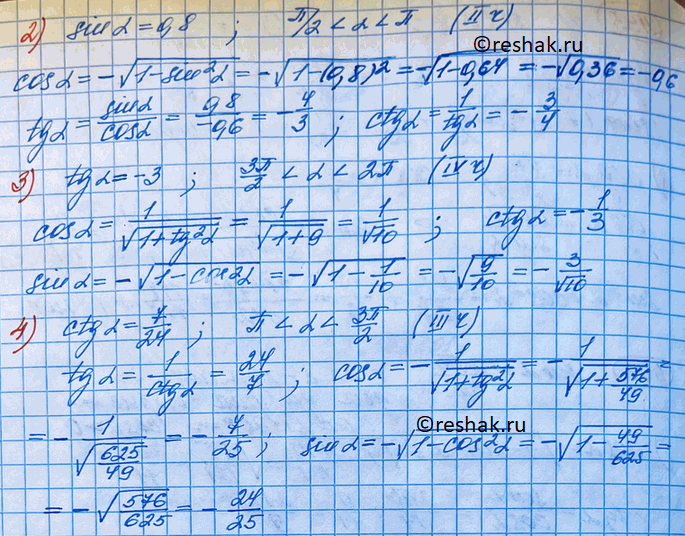 2) sin α = 0,8 ; π/2 < α < π (II ч)
©reshak.ru
cos α = -√(1-sin²α) = -√(1-(0,8)²) = -√(1-0,64) = -√0,36 = -0,6
tg α = sin α/cos α = 0,8/-0,6 = -4/3 ; ctg α = 1/tg α = -3/4
3) tg α = -3 ; 3π/2 < α < 2π (IV ч)
cos α = 1/√(1+tg²α) = 1/√(1+9) = 1/√10 ; ctg α = -1/3
sin α = -√(1-cos²α) = -√(1-1/10) = -√(9/10) = -3/√10
4) ctg α = 7/24 ; π < α < 3π/2 (III ч)
tg α = 1/ctg α = 24/7 ; cos α = -1/√(1+tg²α) = -1/√(1+576/49) =
©reshak.ru
= -1/√(625/49) = -7/25 ; sin α = -√(1-cos²α) = -√(1-49/625) =
= -√(576/625) = -24/25